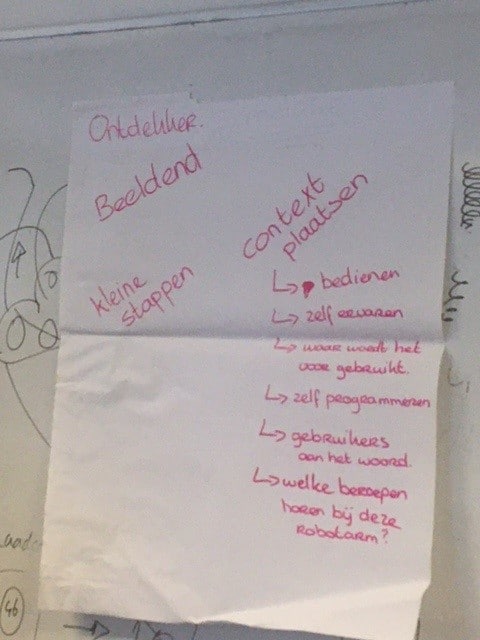 Ontdekker.
Beeldend
kleine
stappen
context
plaatsen
↳ bedienen
↳ zelf ervaren
↳ waar wordt het
voor gebruikt.
↳ zelf programmeren
↳ gebruikers
aan het woord.
↳ welke beroepen
horen bij deze
robotarm?
46